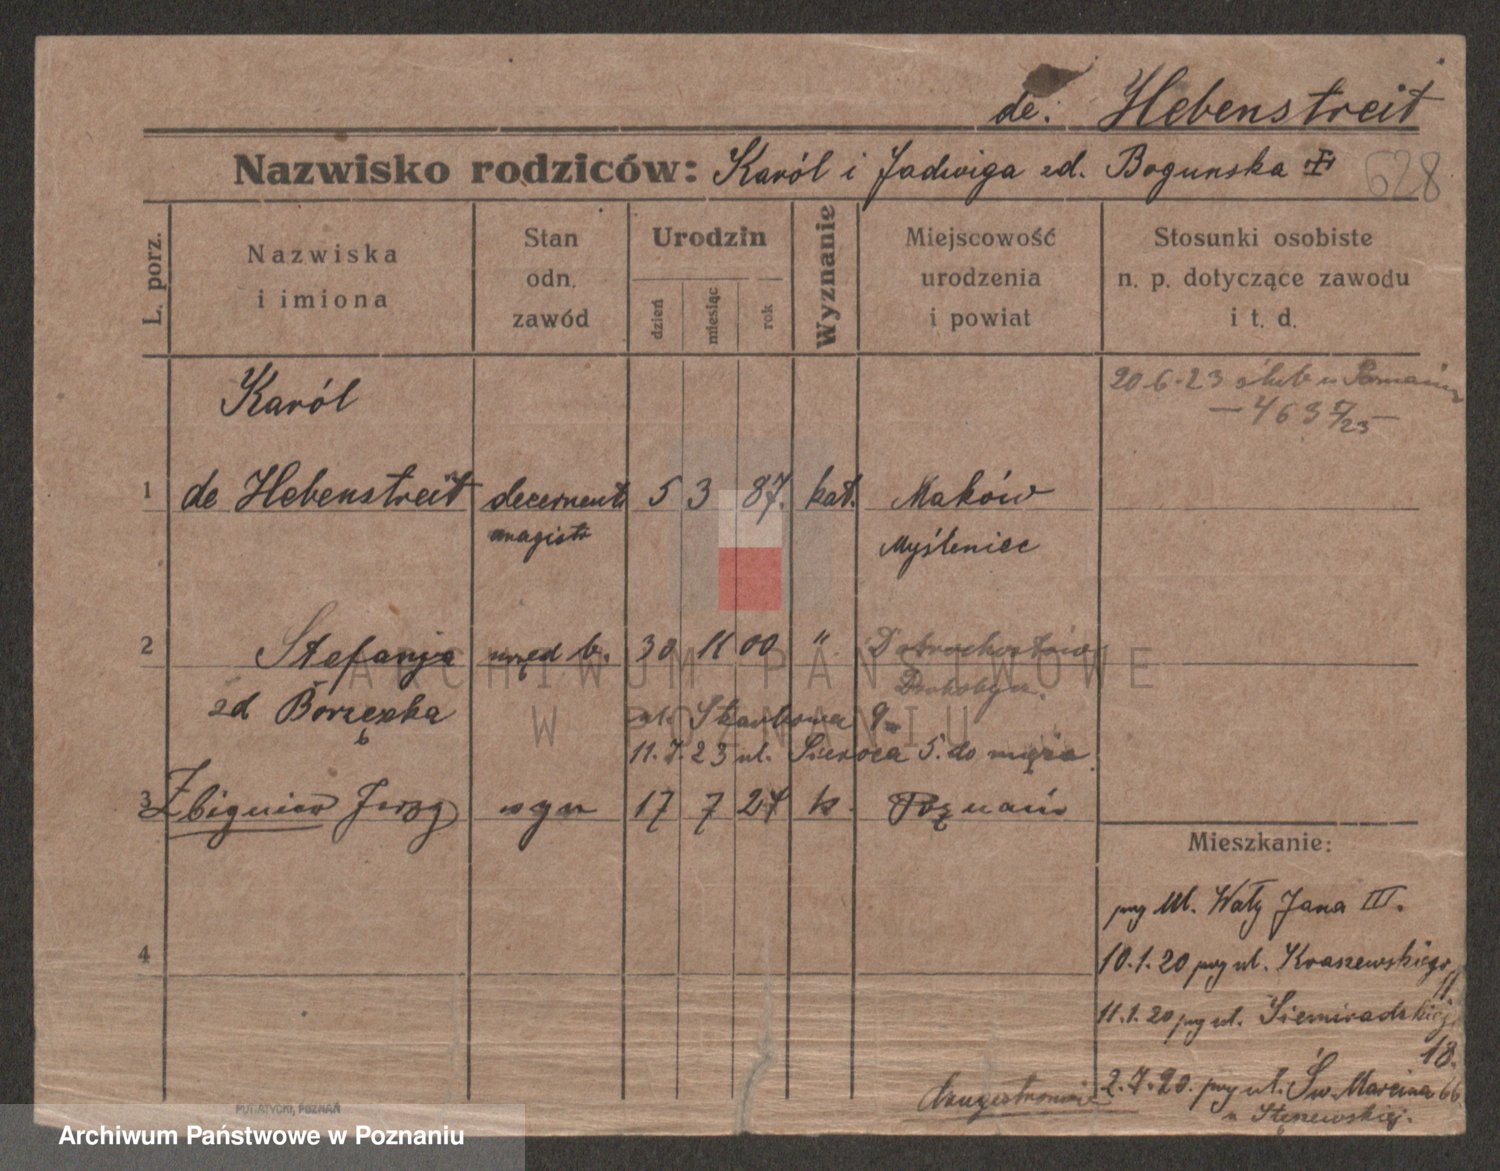 de. Hebenstreit
Nazwisko rodziców: Karól i Jadwiga zd. Bogunska
628
L. porz.
Nazwiska
i imiona
Stan
odn.
zawód
Urodzin
dzień
miesiąc
rok
Wyznanie
Miejscowość
urodzenia
i powiat
Stosunki osobiste
n. p. dotyczące zawodu
i t. d.
20.6.23 ślub w Poznaniu
Karól
1 de Hebenstreit decernent 5 3 87. kat. Maków
magistr Myśleniec
2 Stefanja urzęd b. 30 11 00 "
zd Borzęcka
ul. Skarbowa 9
11.7.23 ul. Sieroca 5. do męża
3 Zbigniew Jerzy syn 17 7 24 k. Poznań
Mieszkanie:
4
przy ul. Wały Jana III.
10.1.20 przy ul. Kraszewskiego 11
11.1.20 przy ul. Siemiradzkiego
18.
2.7.20. przy ul. Św. Marcina 66
u Stęszewskiej.
ARCHIWUM PAŃSTWOWE
W POZNANIU
PUTIATYCKI, POZNAŃ
Archiwum Państwowe w Poznaniu